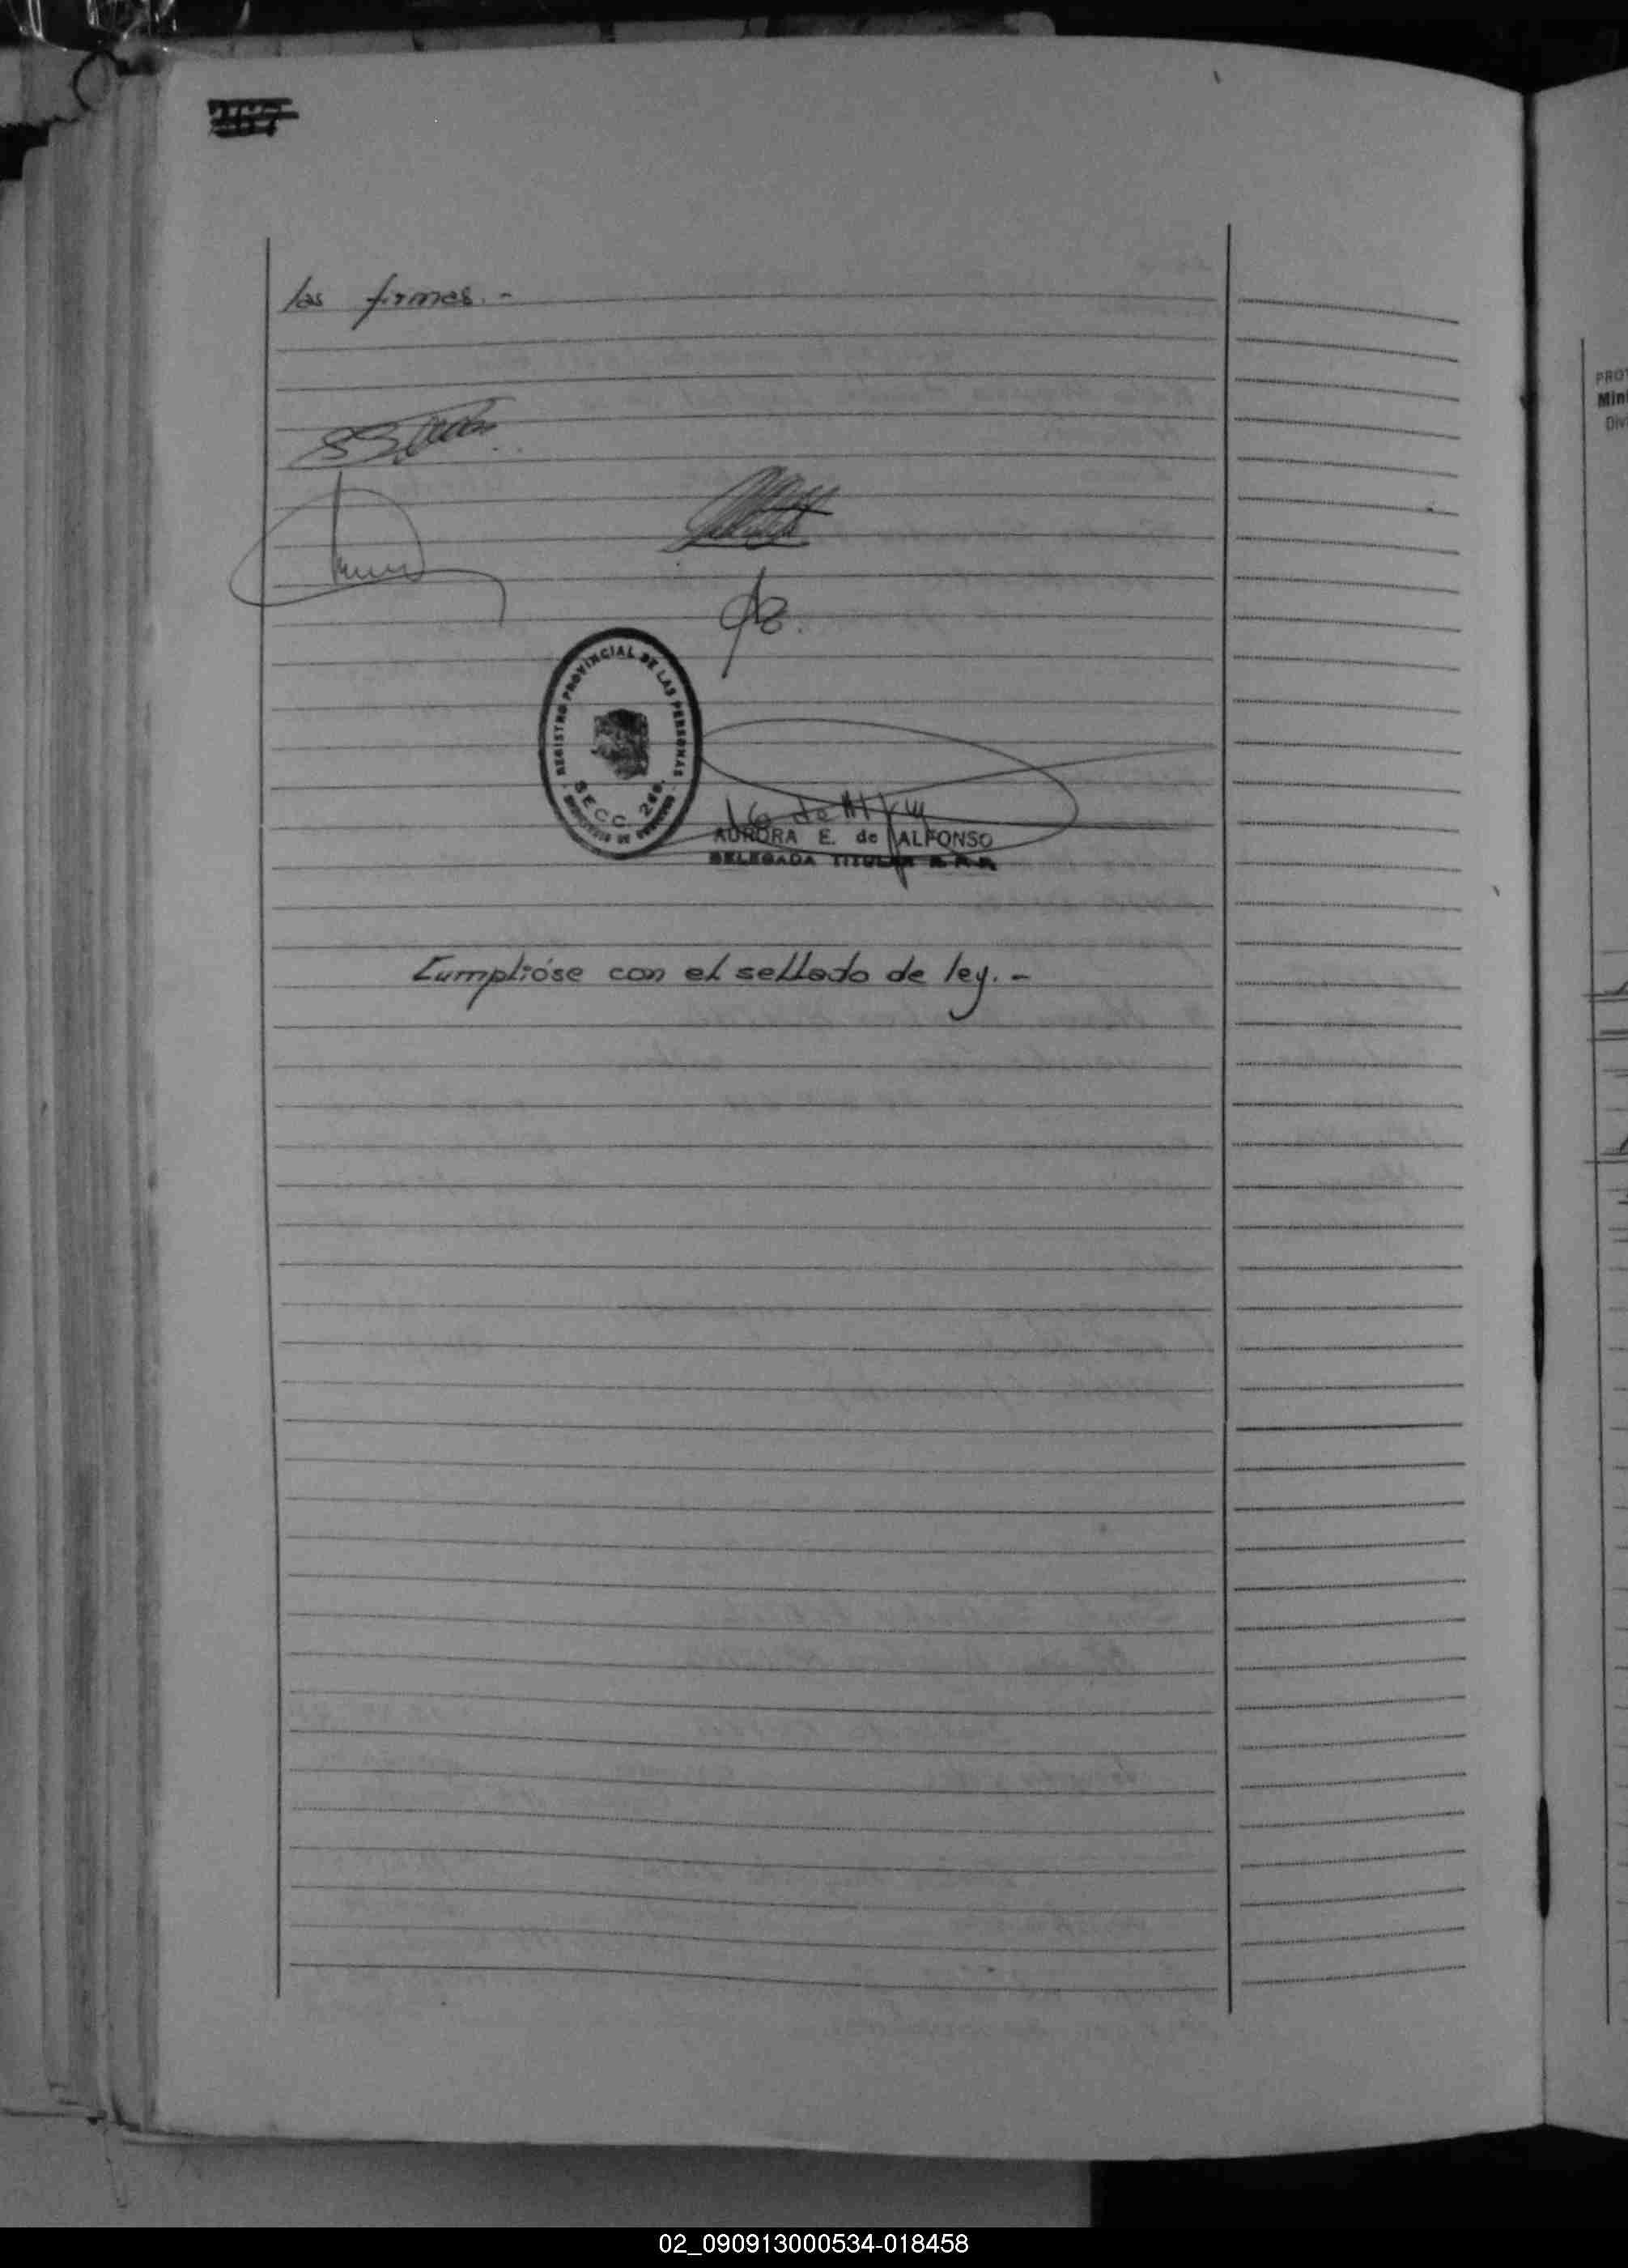 las firmas.-
REGISTRO PROVINCIAL DE LAS PERSONAS
SECC. 2da.
AURORA E. de ALFONSO
DELEGADA TITULAR R.P.P.
Cumplióse con el sellado de ley.-
PRO
Min
Div
02_090913000534-018458